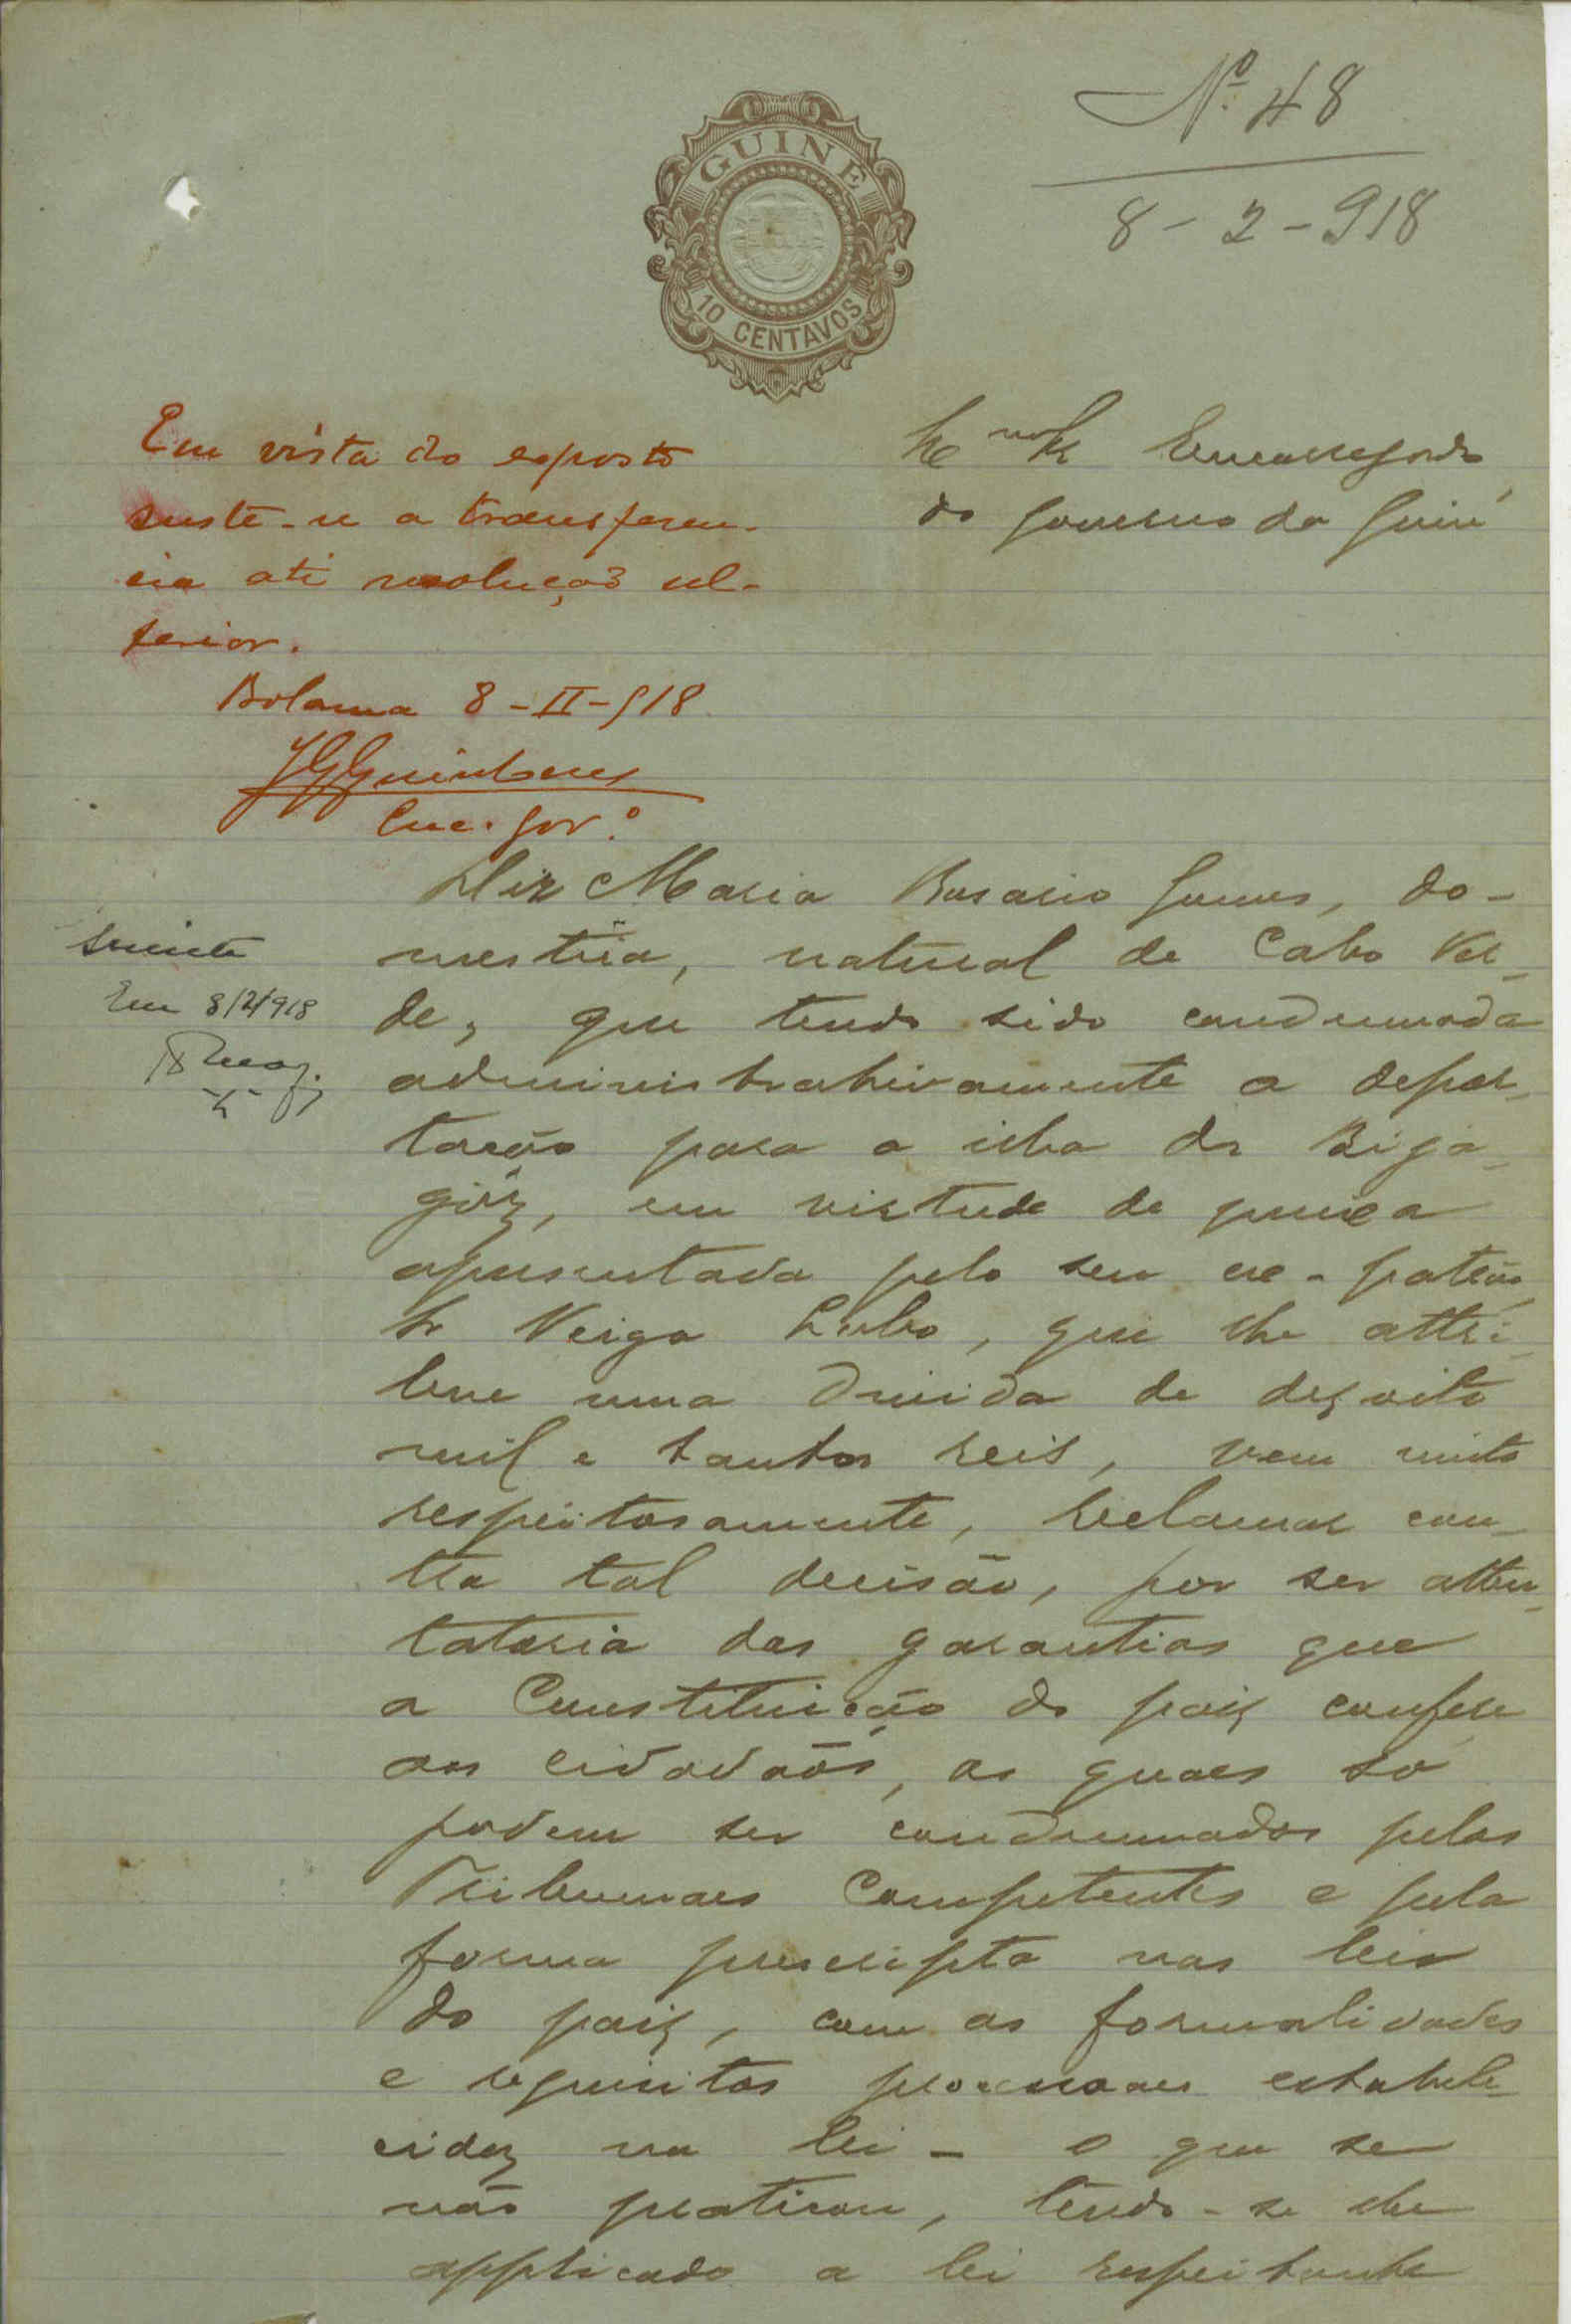 Nº 48
8-2-918
GUINE
10 CENTAVOS
Em vista do exposto
suste-se a transferen-
cia até resolução ul-
terior.
Bolama 8-II-918
Enc. Govº
Encarregado
do Governo da Guiné
Diz Maria Rosario Gomes, do-
mestica, natural de Cabo Ver-
de, que tendo sido condemnada
administrativamente a depor-
tação para a ilha de Bija-
góz, em virtude de queixa
apresentada pelo seu ex-patrão
Sr Veiga Lobo, que lhe attri-
bue uma divida de dezoito
mil e tantos reis, vem muito
respeitosamente, reclamar con-
tra tal decisão, por ser atten-
tatoria das garantias que
a Constituição do paiz confere
aos cidadãos, os quaes só
podem ser condemnados pelos
Tribunaes Competentes e pela
forma prescripta nas leis
do paiz, com as formalidades
e requisitos processoaes estabele-
cidoz na lei - o que se
não praticou, tendo-se lhe
applicado a lei respeitante
Em 8/2/918